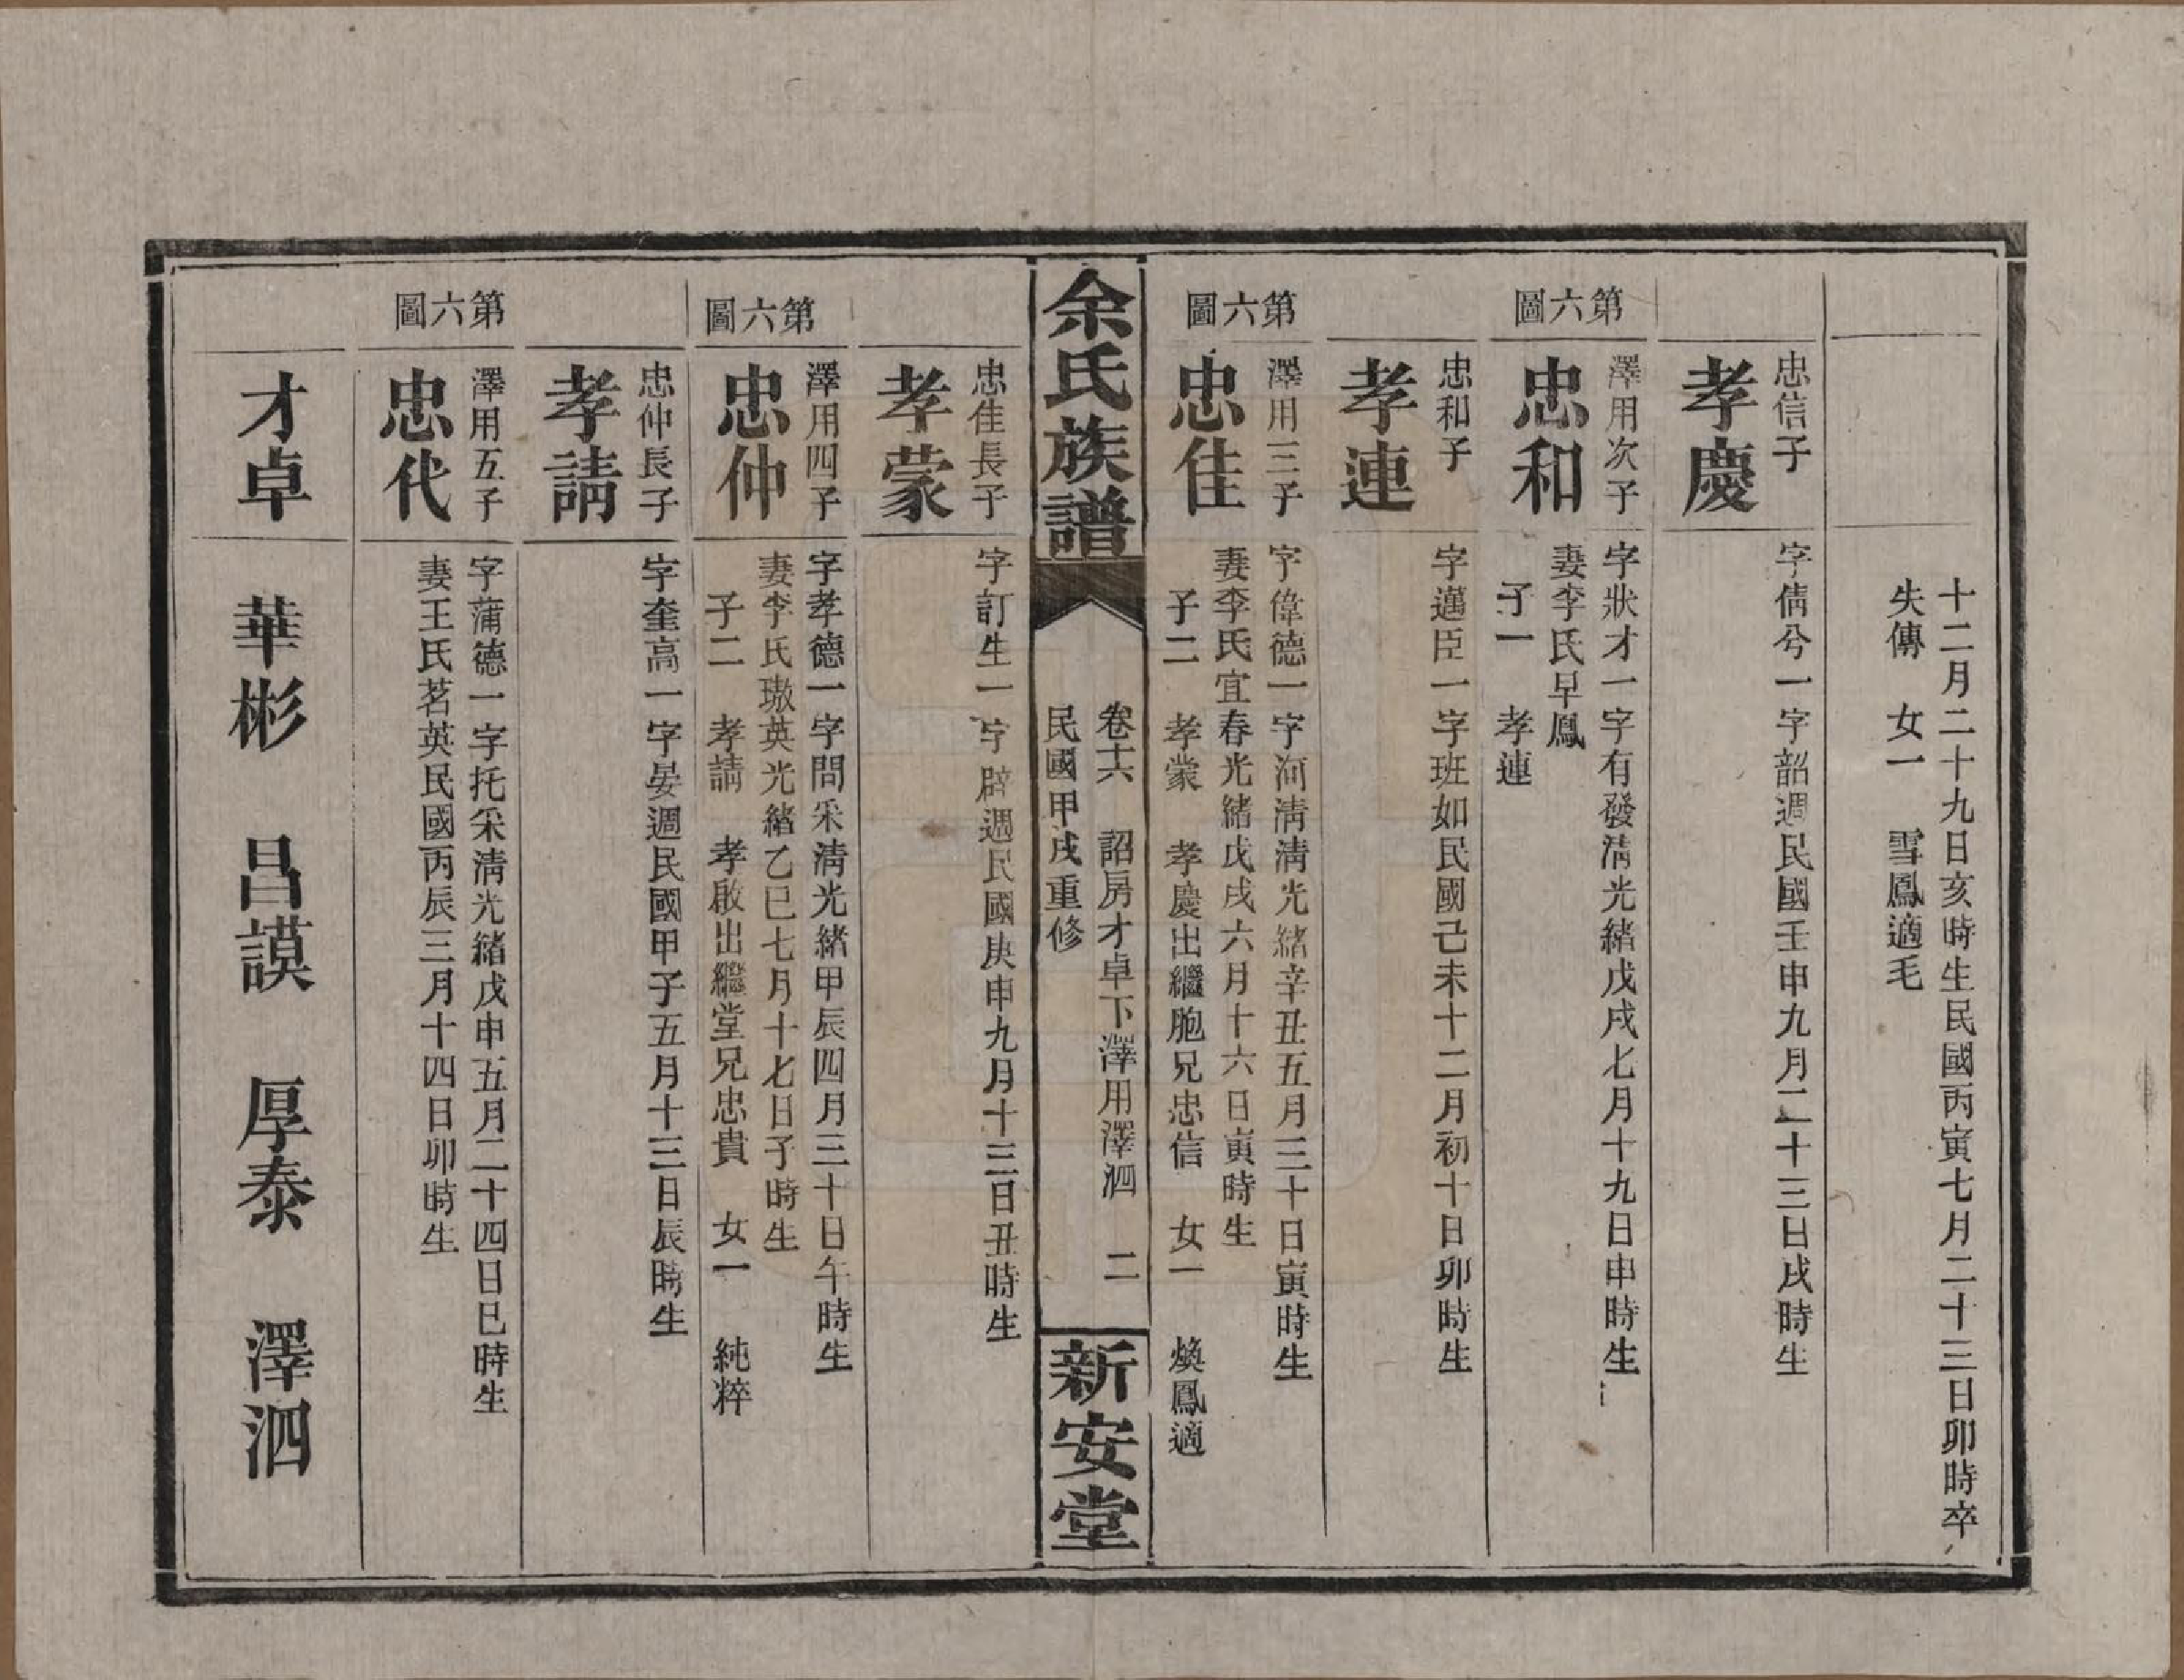 十二月二十九日亥時生民國丙寅七月二十三日卯時卒
失傳　女一　雪鳳適毛
忠信子
孝慶
字倩兮一字韶週民國壬申九月二十三日戌時生
第六圖
澤用次子
忠和
字狀才一字有發清光緒戊戌七月十九日申時生
妻李氏早鳳
子一　孝連
忠和子
孝連
字邁臣一字班如民國己未十二月初十日卯時生
第六圖
澤用三子
忠佳
字偉德一字河清清光緒辛丑五月三十日寅時生
妻李氏宜春光緒戊戌六月十六日寅時生
子二　孝蒙　孝慶出繼胞兄忠信　女一　煥鳳適
余氏族譜
卷十六　詔房才卓下澤用澤泗　二
民國甲戌重修
新安堂
忠佳長子
孝蒙
字訂生一字辟週民國庚申九月十三日丑時生
第六圖
澤用四子
忠仲
字孝德一字問采清光緒甲辰四月三十日午時生
妻李氏璈英光緒乙巳七月十七日子時生
子二　孝請　孝啟出繼堂兄忠貴　女一　純粹
忠仲長子
孝請
字奎高一字晏週民國甲子五月十三日辰時生
第六圖
澤用五子
忠代
字蒲德一字托采清光緒戊申五月二十四日巳時生
妻王氏茗英民國丙辰三月十四日卯時生
才卓　華彬　昌謨　厚泰　澤泗